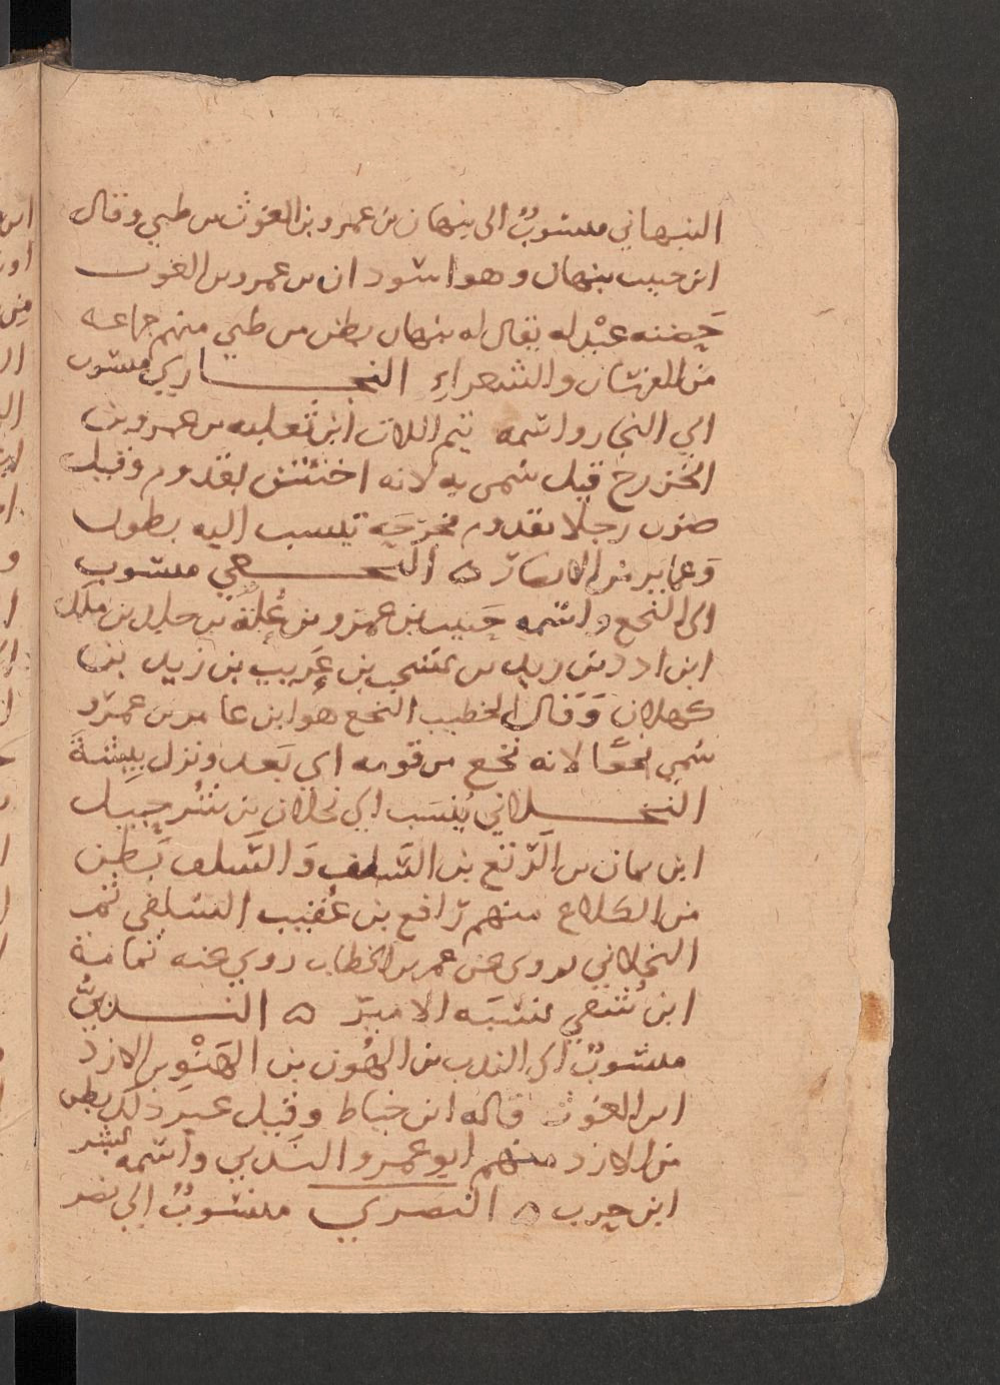 النبهاني منسوبٌ الى نبهان بن عمرو بن الغوث بن طيي وقال
ابن حبيب نبهان وهو اسودان بن عمرو بن الغوث
حضنه عبْد له يقال له نبهان بطن من طيي منهم جماعه
من الفرسان والشعراءِ النجاري منسوب
الي النجار واسمه تيم اللات ابن ثعلبه بن عمرو بن
الخزرج قيل سُمي به لانه اختتن بقدوم وقيل
ضرب رجلا بقدوم فجرحَه تنسب اليه بطون
وَعماير من الانصار ه النخعي منسوب
الى النخع واسمه حَبيب بن عمرو بن عُلةَ بن جلد بن ملك
ابن ادد بن زيد بن يشجب بن عَريب بن زيد بن
كهلان وَقال الخطيب النخع هُوا بن عامر بن عمرو
سُمي نخعًا لانه نخع من قومه اي بَعد ونزل بِبيشةَ
النخلاني يُنسَب الي نخلان بن شُرحبيل
ابن مان بن الَرتع بن السَلف وَالسَّلف بَطن
من الكلاع منهم رافع بن عُقيب السلفي ثم
النخلاني يروى عن عمر بن الخطاب روي عنه ثمامة
ابن شُفي نسَبَه الامير ه الندبيُّ
منسوبٌ الى الندب بن الهُون بن الهَنْوِ بن الازد
ابن الغوث قاله ابن خياط وقيل غير ذلك بطن
من الازد منهم ابو عمرو الندبي واسمه بشر
ابن حرب ه النصري منسوبٌ الي نصر